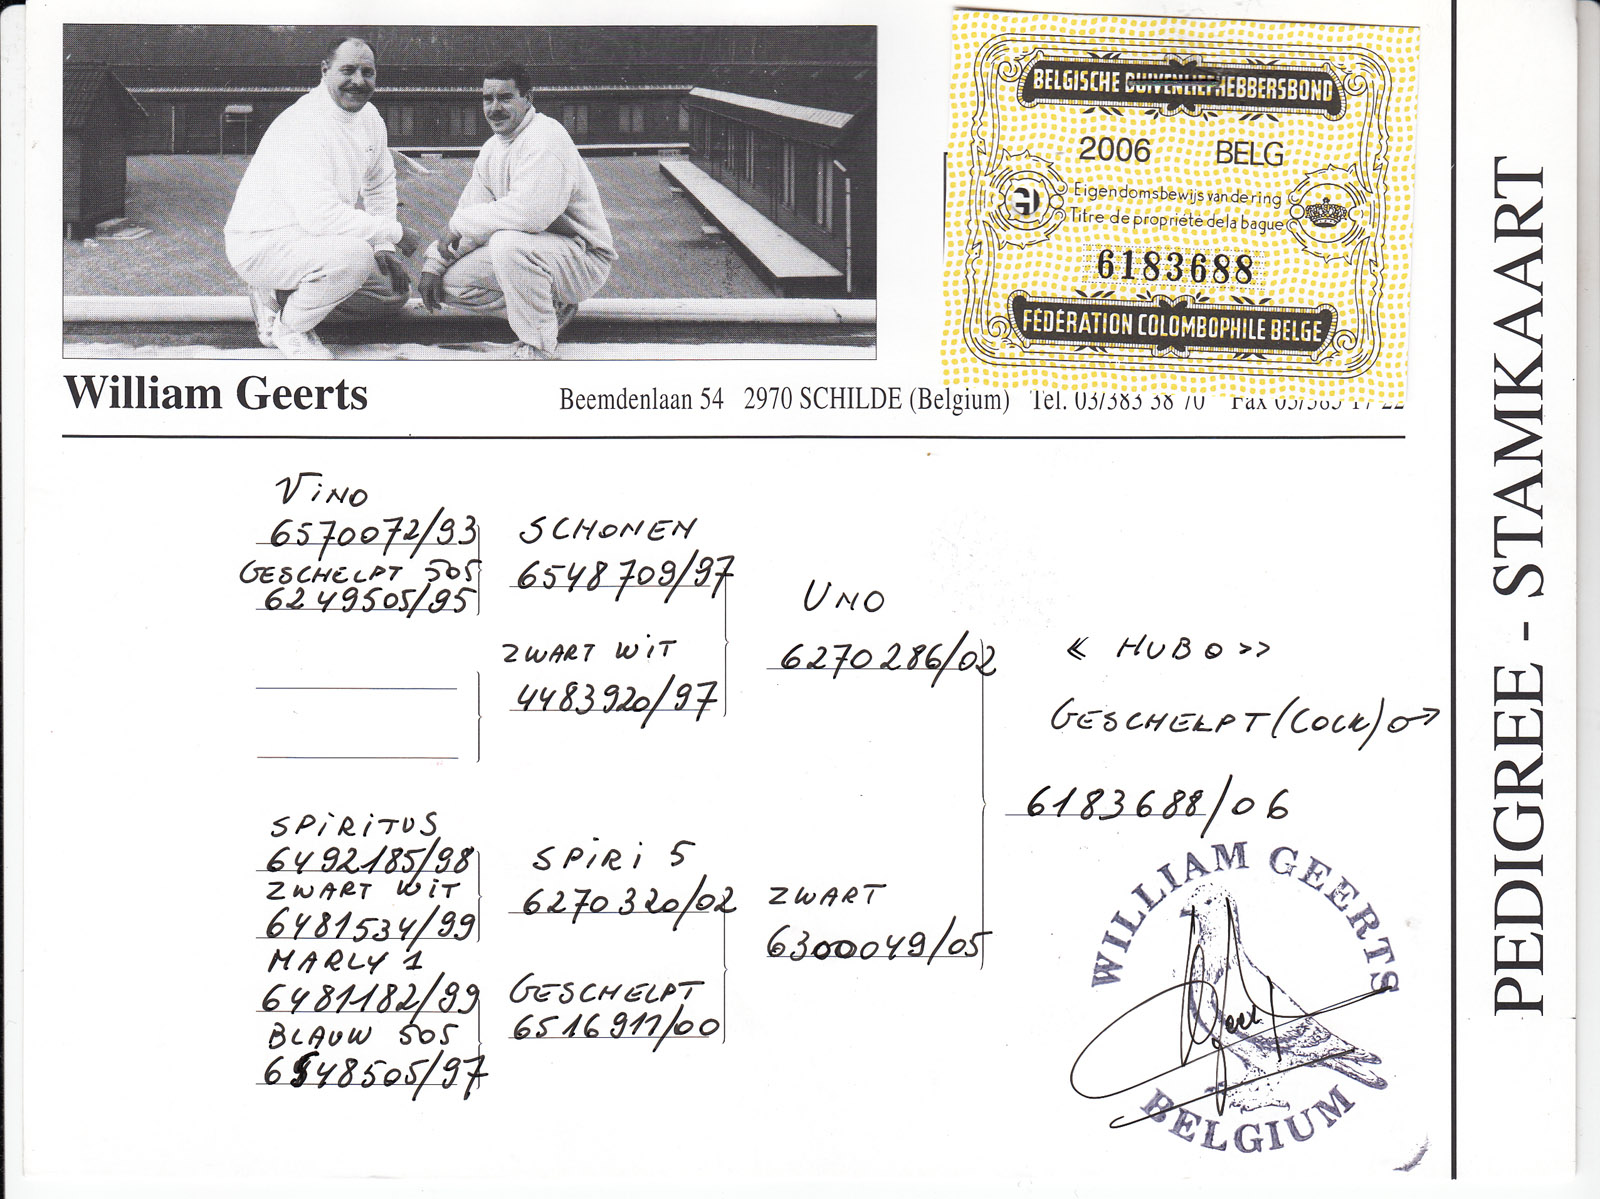 BELGISCHE DUIVENLIEFHEBBERSBOND
2006 BELG
Eigendomsbewijs van de ring
Titre de propriété de la bague
6183688
FÉDÉRATION COLOMBOPHILE BELGE
William Geerts
Beemdenlaan 54 2970 SCHILDE (Belgium) Tel. 03/383 38 70 Fax 03/383 17 22
PEDIGREE - STAMKAART
VINO
6570072/93
GESCHELPT 505
6249505/95
SCHONEN
6548709/97
ZWART WIT
4483920/97
UNO
6270286/02
« HUBO »
GESCHELPT (COCK) ♂
6183688/06
SPIRITUS
6492185/98
ZWART WIT
6481534/99
MARLY 1
6481182/99
BLAUW 505
6548505/97
SPIRI 5
6270320/02
GESCHELPT
6516911/00
ZWART
6300049/05
WILLIAM GEERTS
BELGIUM